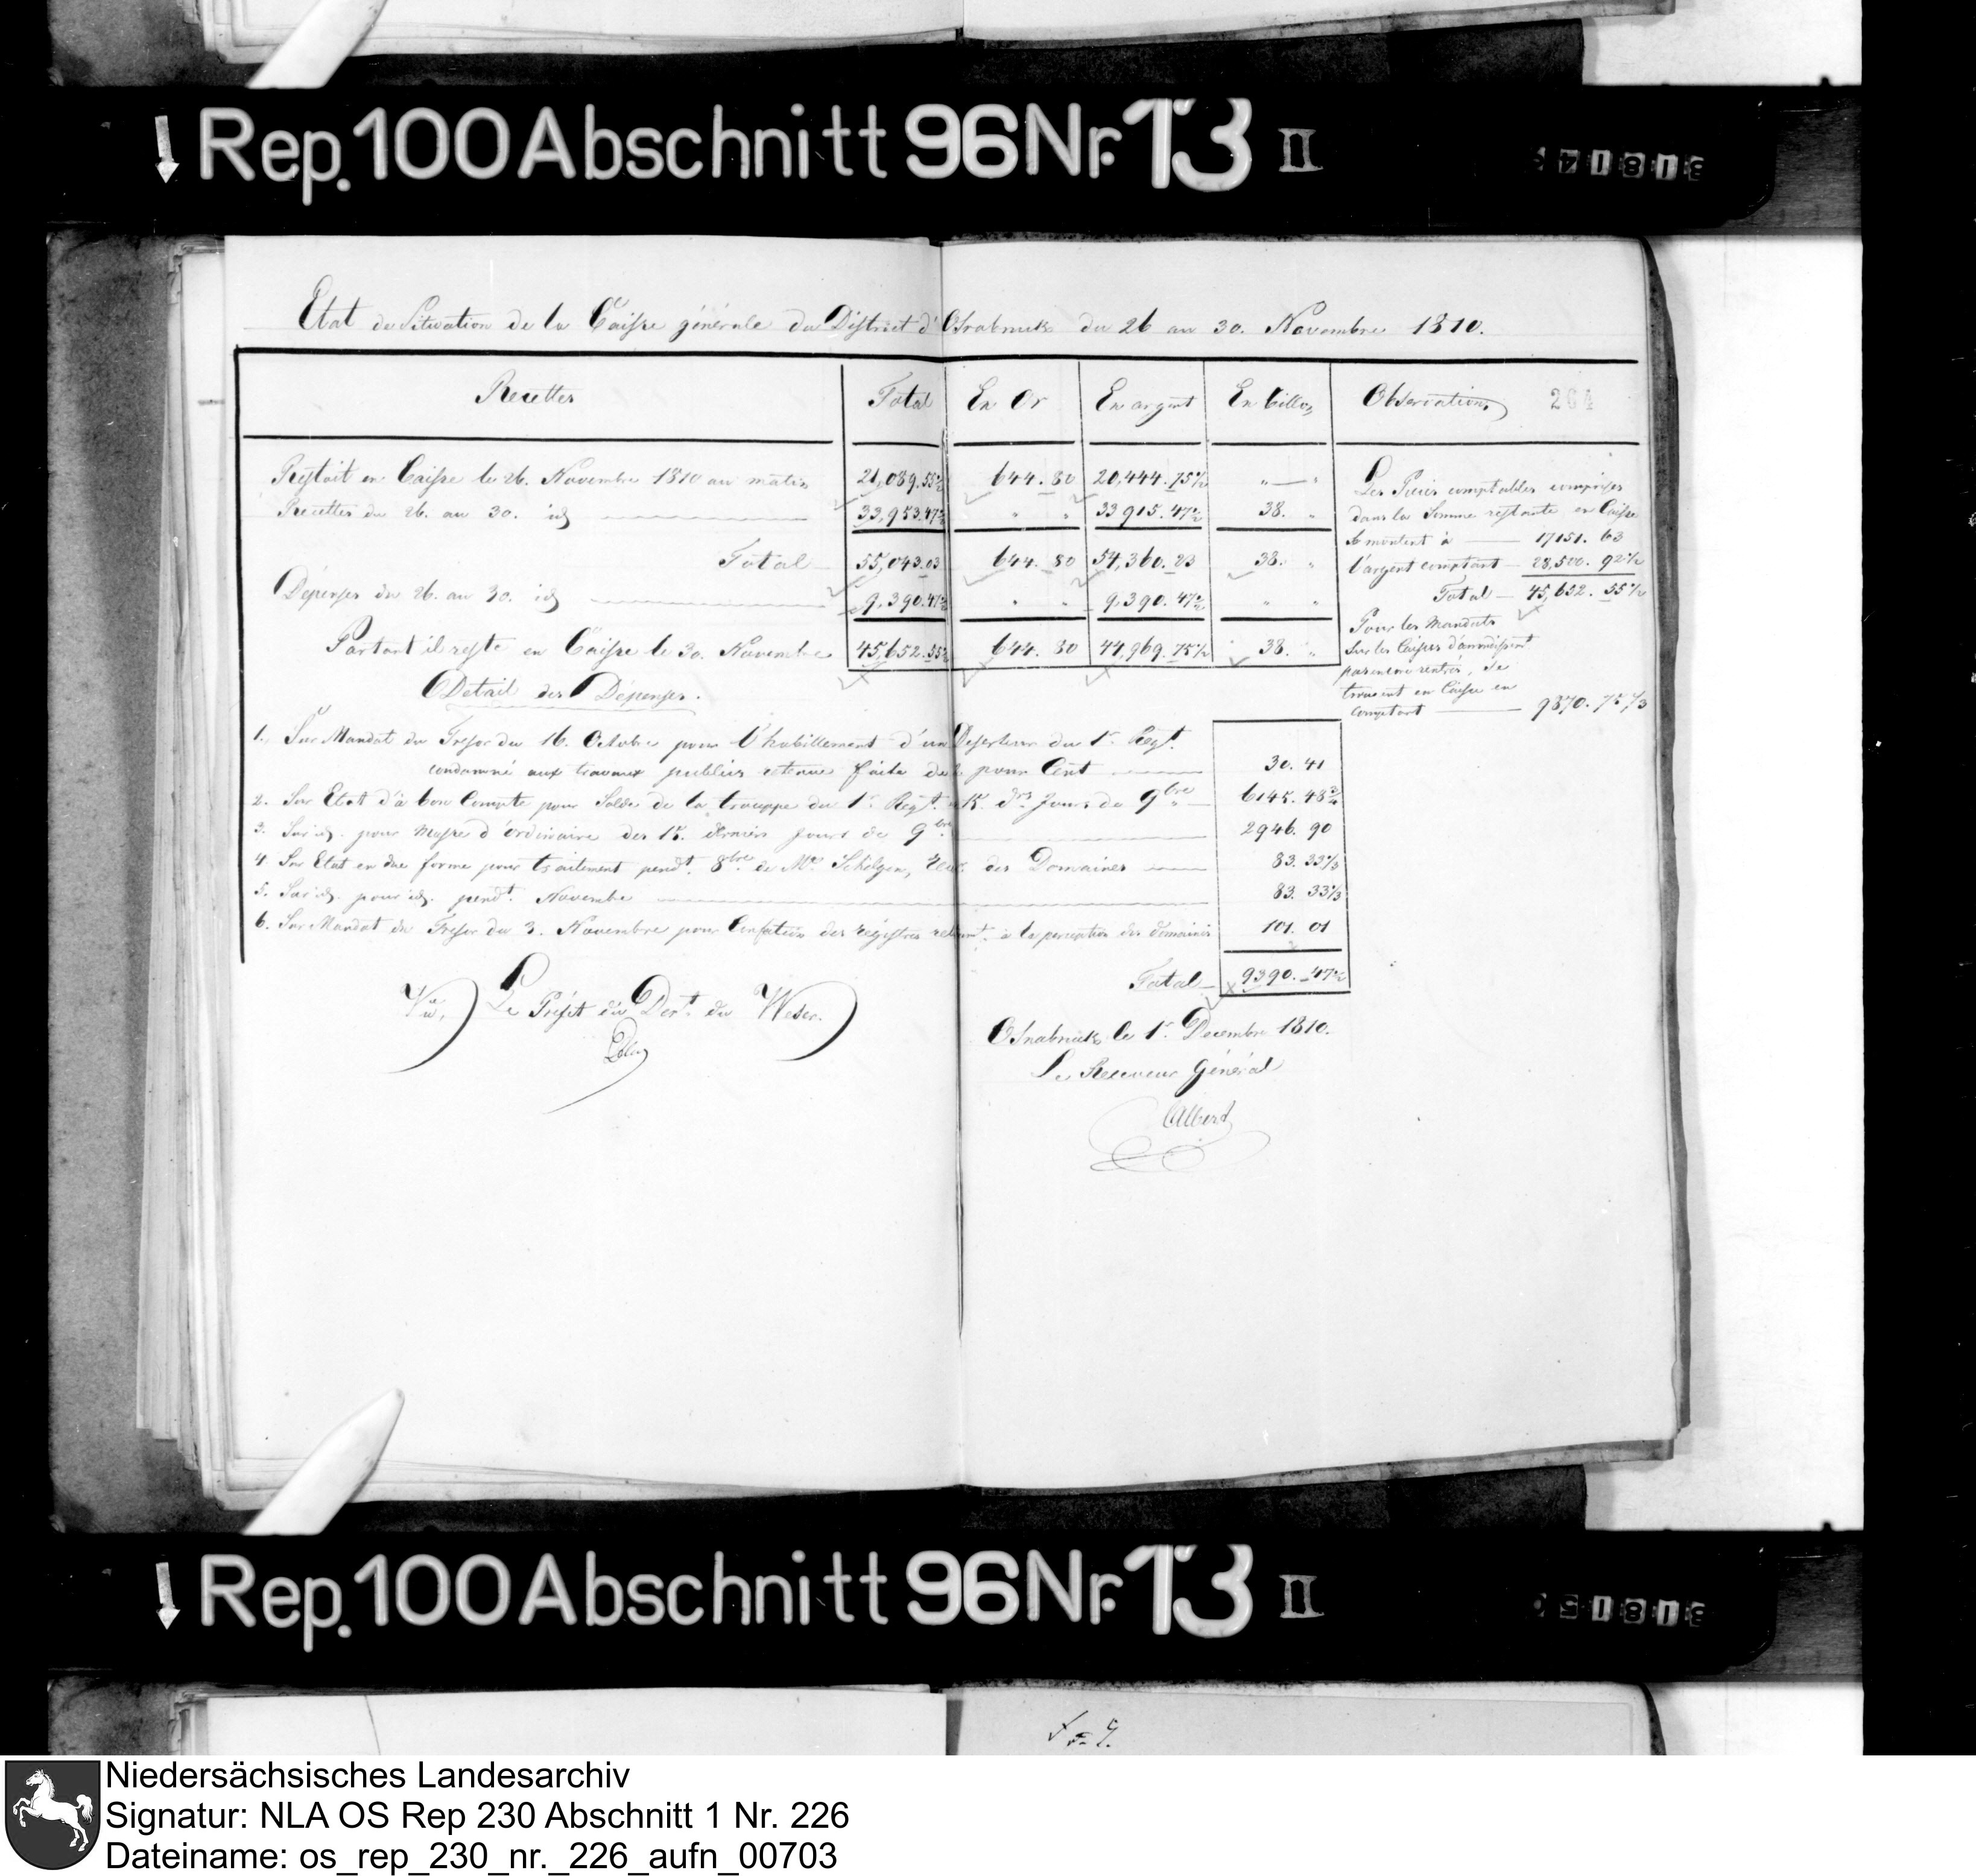 Rep. 100 Abschnitt 96 Nr. 13 II
Etat de Situation de la Caisse générale du District d'Osnabruck du 26 au 30. Novembre 1810.
Recettes Total En Or En argent En billon Observations 264
Restait en Caisse le 26. Novembre 1810 au matin 21,089.55½ 644.80 20.444.75½ " — "
Recettes du 26. au 30. id 33,953.47½ " " 33 915.47½ 38. "
Total 55,043.03 644.80 54,360.23 38. "
Dépenses du 26. au 30. id 9,390.47½ " " 9,390.47½ " "
Partant il reste en Caisse le 30. Novembre 45,652.55½ 644.80 44,969.75½ 38. "
Les Pièces comptables comprises
dans la Somme restante en Caisse
se montent à 17151. 63
l'argent comptant 28,500. 92½
Total 45,652. 55½
Pour les Mandats
sur les Caisses d'arrondissemt
pas encore rentrés, se
trouvent en Caisse en
comptant 9870. 75⅓
Detail des Dépenses.
1. Sur Mandat du Tresor du 16. Octobre pour l'habillement d'un Deserteur du 1r Regt.
condamné aux travaux publics retenue faite de pour Cent 30. 41
2. Sur Etat d'à bon Compte pour Solde de la trouppe du 1r Regt. 15. drs Jours de 9bre 6145. 48¾
3. Sur id. pour Masse d'ordinaire des 15. derniers jours de 9bre 2946. 90
4. Sur Etat en due forme pour traitement pendt. 8bre de Mr. Schelgen, des Domaines 83. 33⅓
5. Sur id. pour id. pendt. Novembre 83. 33⅓
6. Sur Mandat du Tresor du 3. Novembre pour Confection des régistres relativt. à la perception des domaines 101. 01
Total 9390. 47½
Vu, Le Préfet du Dept. du Weser.
Osnabruck le 1r Decembre 1810.
Le Receveur Général
Albert
Rep. 100 Abschnitt 96 Nr. 13 II
Niedersächsisches Landesarchiv
Signatur: NLA OS Rep 230 Abschnitt 1 Nr. 226
Dateiname: os_rep_230_nr._226_aufn_00703